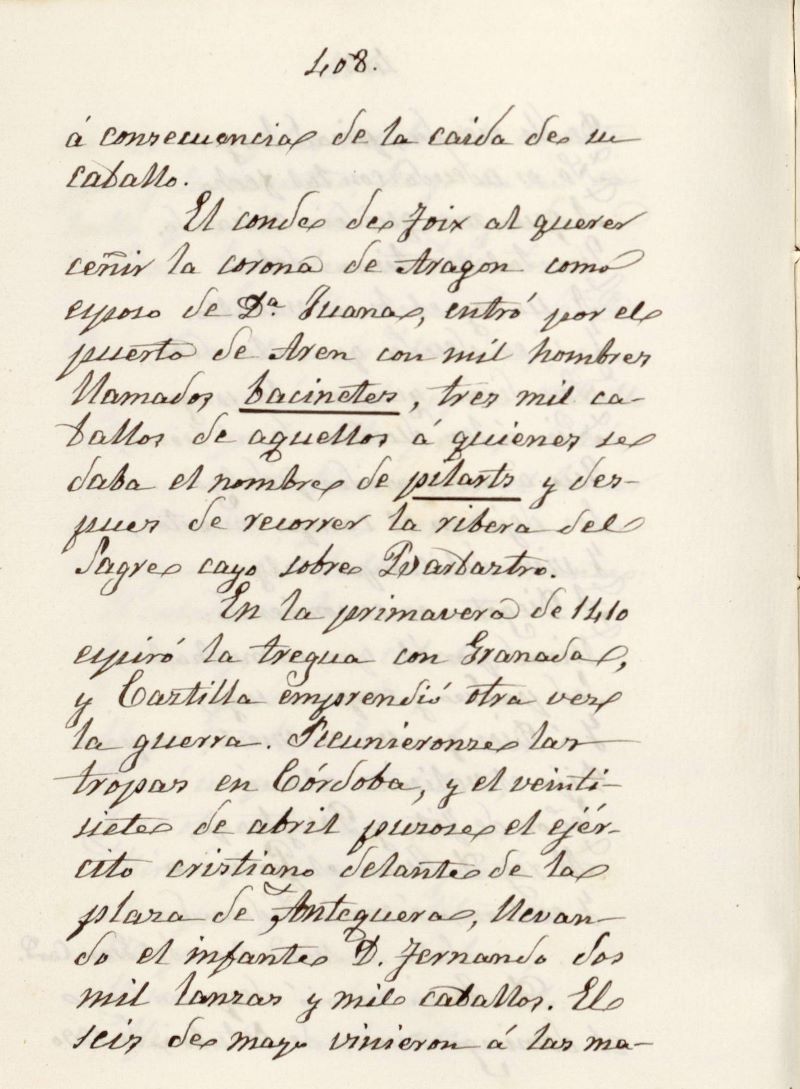 408.
á consecuencia de la caida de su
caballo.
El conde de Foix al querer
ceñir la corona de Aragon como
esposo de Dª. Juana, entró por el
puerto de Aren con mil hombres
llamados bacinetes, tres mil ca-
ballos de aquellos á quienes se
daba el nombre de pilarts y des-
pues de recorrer la ribera del
Sagre cayo sobre Barbastro.
En la primavera de 1410
espiró la tregua con Granada,
y Castilla emprendió otra vez
la guerra. Reunieronse las
tropas en Córdoba, y el veinti-
siete de abril pusose el ejér-
cito cristiano delante de la
plaza de Antequera, llevan-
do el infante D. Fernando dos
mil lanzas y mil caballos. El
seis de mayo vinieron á las ma-